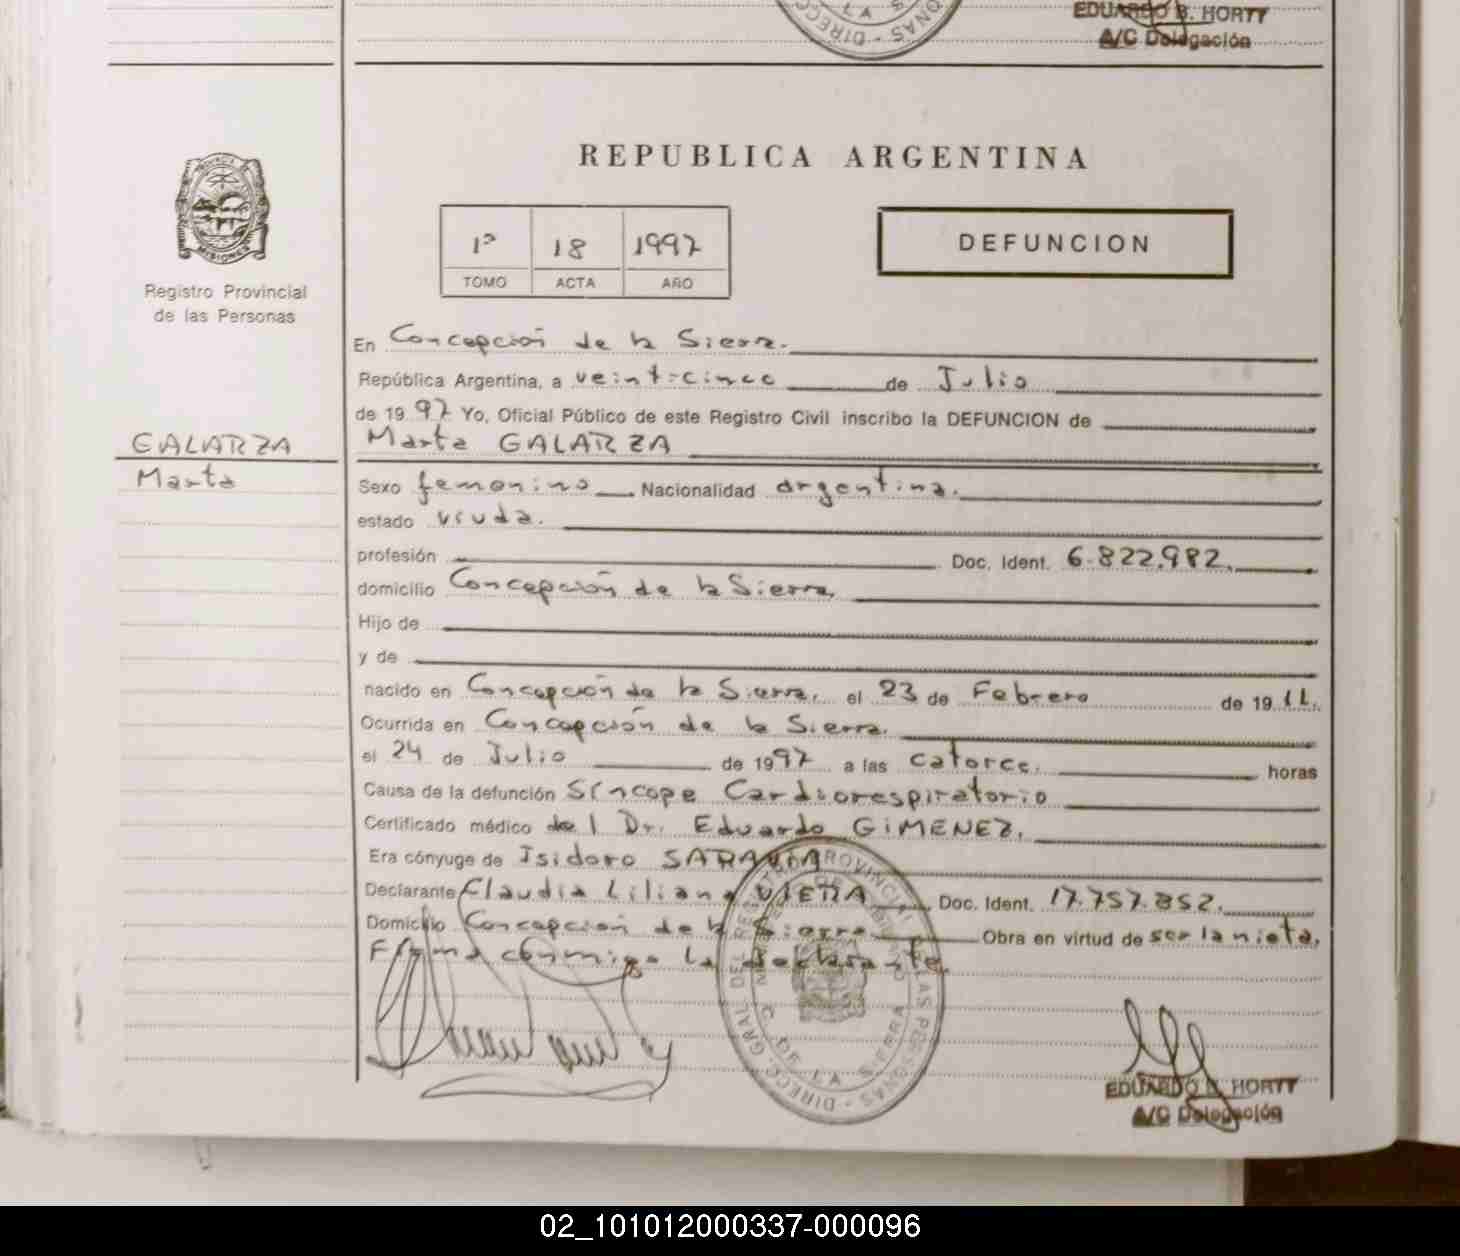 EDUARDO B. HORTT
A/C Delegación
REPUBLICA ARGENTINA
1º 18 1997
TOMO ACTA AÑO
DEFUNCION
MISIONES
Registro Provincial
de las Personas
En Concepción de la Sierra.
República Argentina, a veinticinco de Julio
de 1997 Yo, Oficial Público de este Registro Civil inscribo la DEFUNCION de
Marta GALARZA
GALARZA
Marta
Sexo femenino Nacionalidad argentina.
estado viuda.
profesión Doc. Ident. 6.822.982.
domicilio Concepción de la Sierra,
Hijo de
y de
nacido en Concepción de la Sierra, el 23 de Febrero de 19
Ocurrida en Concepción de la Sierra.
el 24 de Julio de 1997 a las catorce. horas
Causa de la defunción Síncope Cardiorespiratorio
Certificado médico del Dr. Eduardo GIMENEZ.
Era cónyuge de Isidoro SARAVIA
Declarante Claudia Liliana VIERA Doc. Ident. 17.757.852.
Domicilio Concepción de la Sierra Obra en virtud de ser la nieta.
Firma conmigo la declarante.
EDUARDO B. HORTT
A/C Delegación
02_101012000337-000096